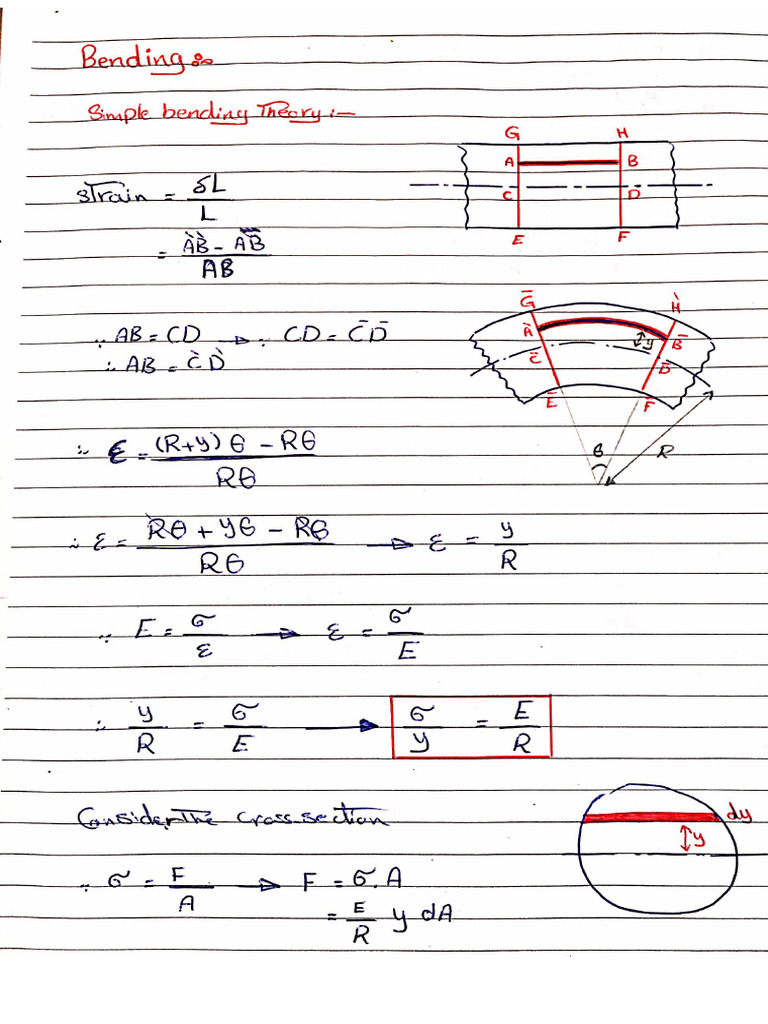 Bending:-
Simple bending Theory:-
G H
A B
C D
E F
sTrain = δL / L
= A̅B̅ - AB / AB
∵ AB = CD → ∵ CD = C̅D̅
∴ AB = C̀D̀
G̅ H̀
À B̅
y
C̅ D̅
E̅ F̅
θ R
∴ ε = (R+y)θ - Rθ / Rθ
∴ ε = Rθ + yθ - Rθ / Rθ → ε = y / R
∵ E = σ / ε → ε = σ / E
∴ y / R = σ / E → σ / y = E / R
Consider The cross.section
dy
y
∵ σ = F / A → F = σ.A
= E / R y dA